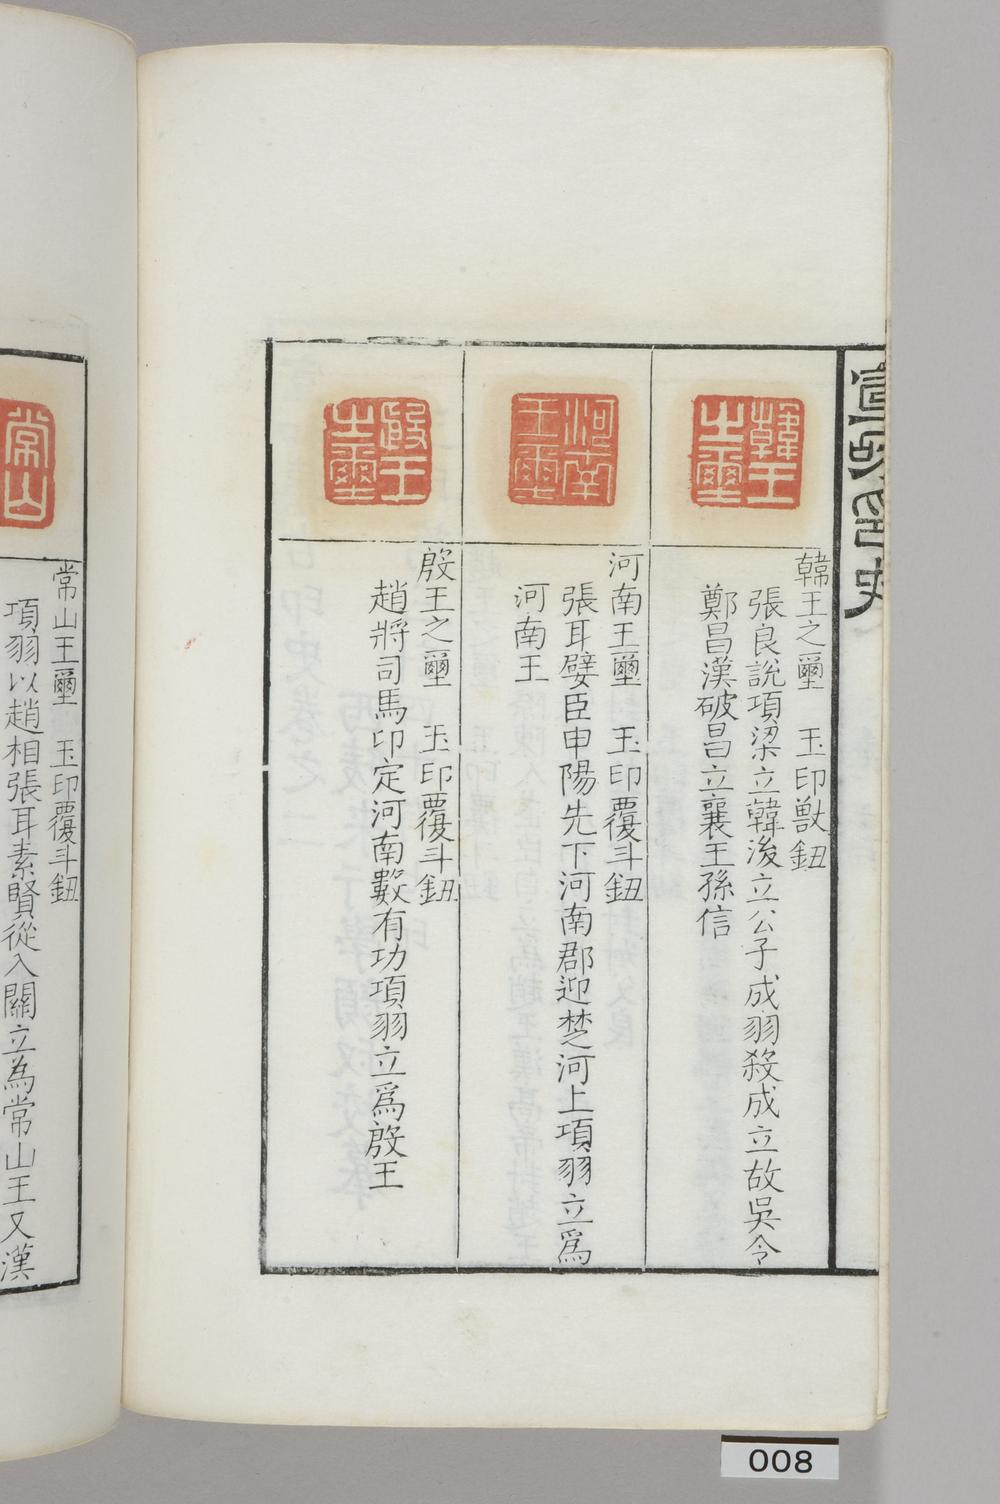 韓王之璽
韓王之璽　玉印獸鈕
張良說項梁立韓後立公子成羽殺成立故吳令
鄭昌漢破昌立襄王孫信
河南王璽
河南王璽　玉印覆斗鈕
張耳嬖臣申陽先下河南郡迎楚河上項羽立爲
河南王
殷王之璽
殷王之璽　玉印覆斗鈕
趙將司馬卬定河南數有功項羽立爲殷王
常山
常山王璽　玉印覆斗鈕
項羽以趙相張耳素賢從入關立為常山王又漢
008